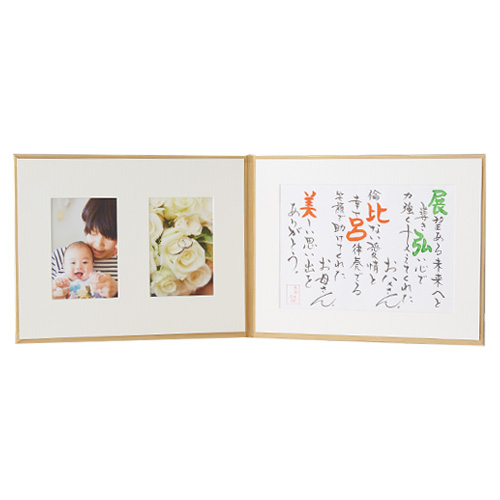 展望ある未来へと
導き弘い心で
力強く支えてくれた
お父さん、
倫比ない愛情と
幸せ呂律奏でる
笑顔で助けてくれた
お母さん、
美しい思い出を
ありがとう。